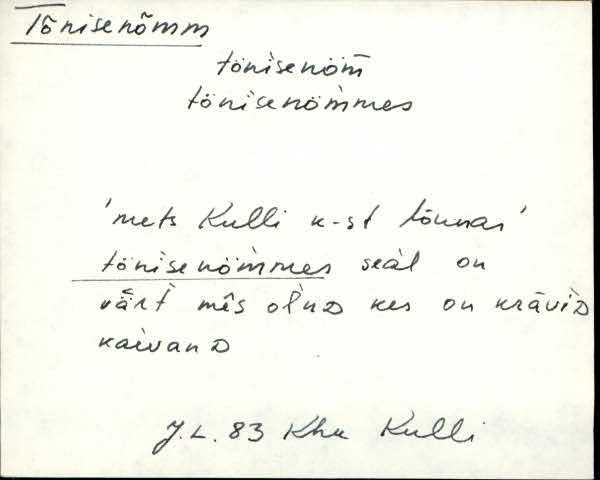 Tõnisenõmm
tönisenöm̄
tönisenöm̀mes
'mets Kulli k-st lõunas'
tönisenöm̀mes seàl on
vä̆rt mês olnD kes on krāvìD
kaèvanD
J.L. 83 Khk Kulli